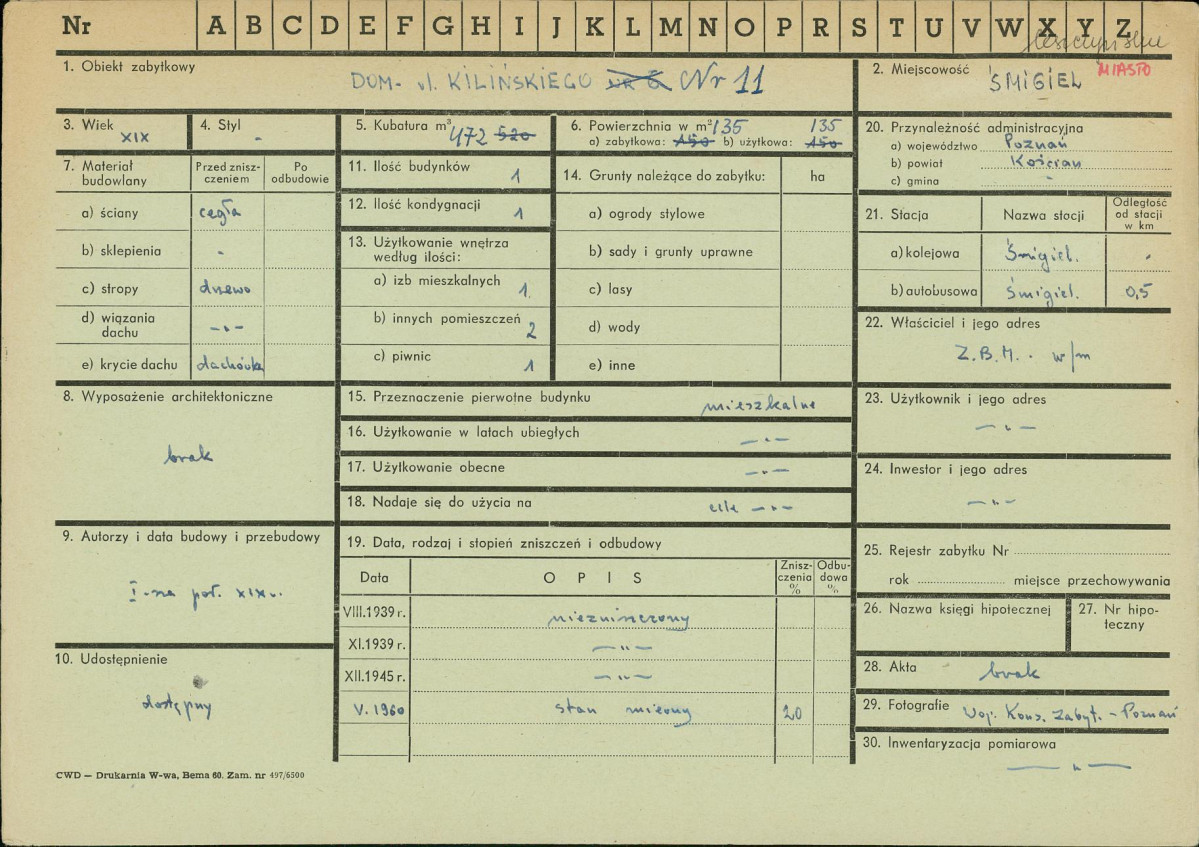 Nr A B C D E F G H I J K L M N O P R S T U V W X Y Z
leszczyńskie
1. Obiekt zabytkowy
DOM - ul. KILIŃSKIEGO NR 6 Nr 11
2. Miejscowość
MIASTO
ŚMIGIEL
3. Wiek
XIX
4. Styl
-
5. Kubatura m³
472 520
6. Powierzchnia w m² 135 135
a) zabytkowa: 150 b) użytkowa: 150
20. Przynależność administracyjna
a) województwo Poznań
b) powiat Kościan
c) gmina -
7. Materiał budowlany
Przed znisz-
czeniem
Po
odbudowie
a) ściany cegła
b) sklepienia -
c) stropy drzewo
d) wiązania
dachu -„-
e) krycie dachu dachówka
11. Ilość budynków 1
12. Ilość kondygnacji 1
13. Użytkowanie wnętrza
według ilości:
a) izb mieszkalnych 1
b) innych pomieszczeń 2
c) piwnic 1
14. Grunty należące do zabytku: ha
a) ogrody stylowe
b) sady i grunty uprawne
c) lasy
d) wody
e) inne
21. Stacja Nazwa stacji
Odległość
od stacji
w km
a) kolejowa Śmigiel. -
b) autobusowa Śmigiel. 0,5
22. Właściciel i jego adres
Z.B.M. - w/m
8. Wyposażenie architektoniczne
brak
15. Przeznaczenie pierwotne budynku mieszkalne
16. Użytkowanie w latach ubiegłych -„-
17. Użytkowanie obecne -„-
18. Nadaje się do użycia na cele -„-
23. Użytkownik i jego adres
-„-
24. Inwestor i jego adres
-„-
9. Autorzy i data budowy i przebudowy
I-sza poł. XIX w.
19. Data, rodzaj i stopień zniszczeń i odbudowy
Data OPIS
Znisz-
czenia
%
Odbu-
dowa
%
VIII.1939 r. niezniszczony
XI.1939 r. -„-
XII.1945 r. -„-
V. 1960 stan mierny 20
25. Rejestr zabytku Nr
rok miejsce przechowywania
26. Nazwa księgi hipotecznej
27. Nr hipo-
teczny
10. Udostępnienie
dostępny
28. Akta brak
29. Fotografie Woj. Kons. Zabyt. - Poznań
30. Inwentaryzacja pomiarowa
-„-
CWD — Drukarnia W-wa, Bema 60. Zam. nr 497/6500